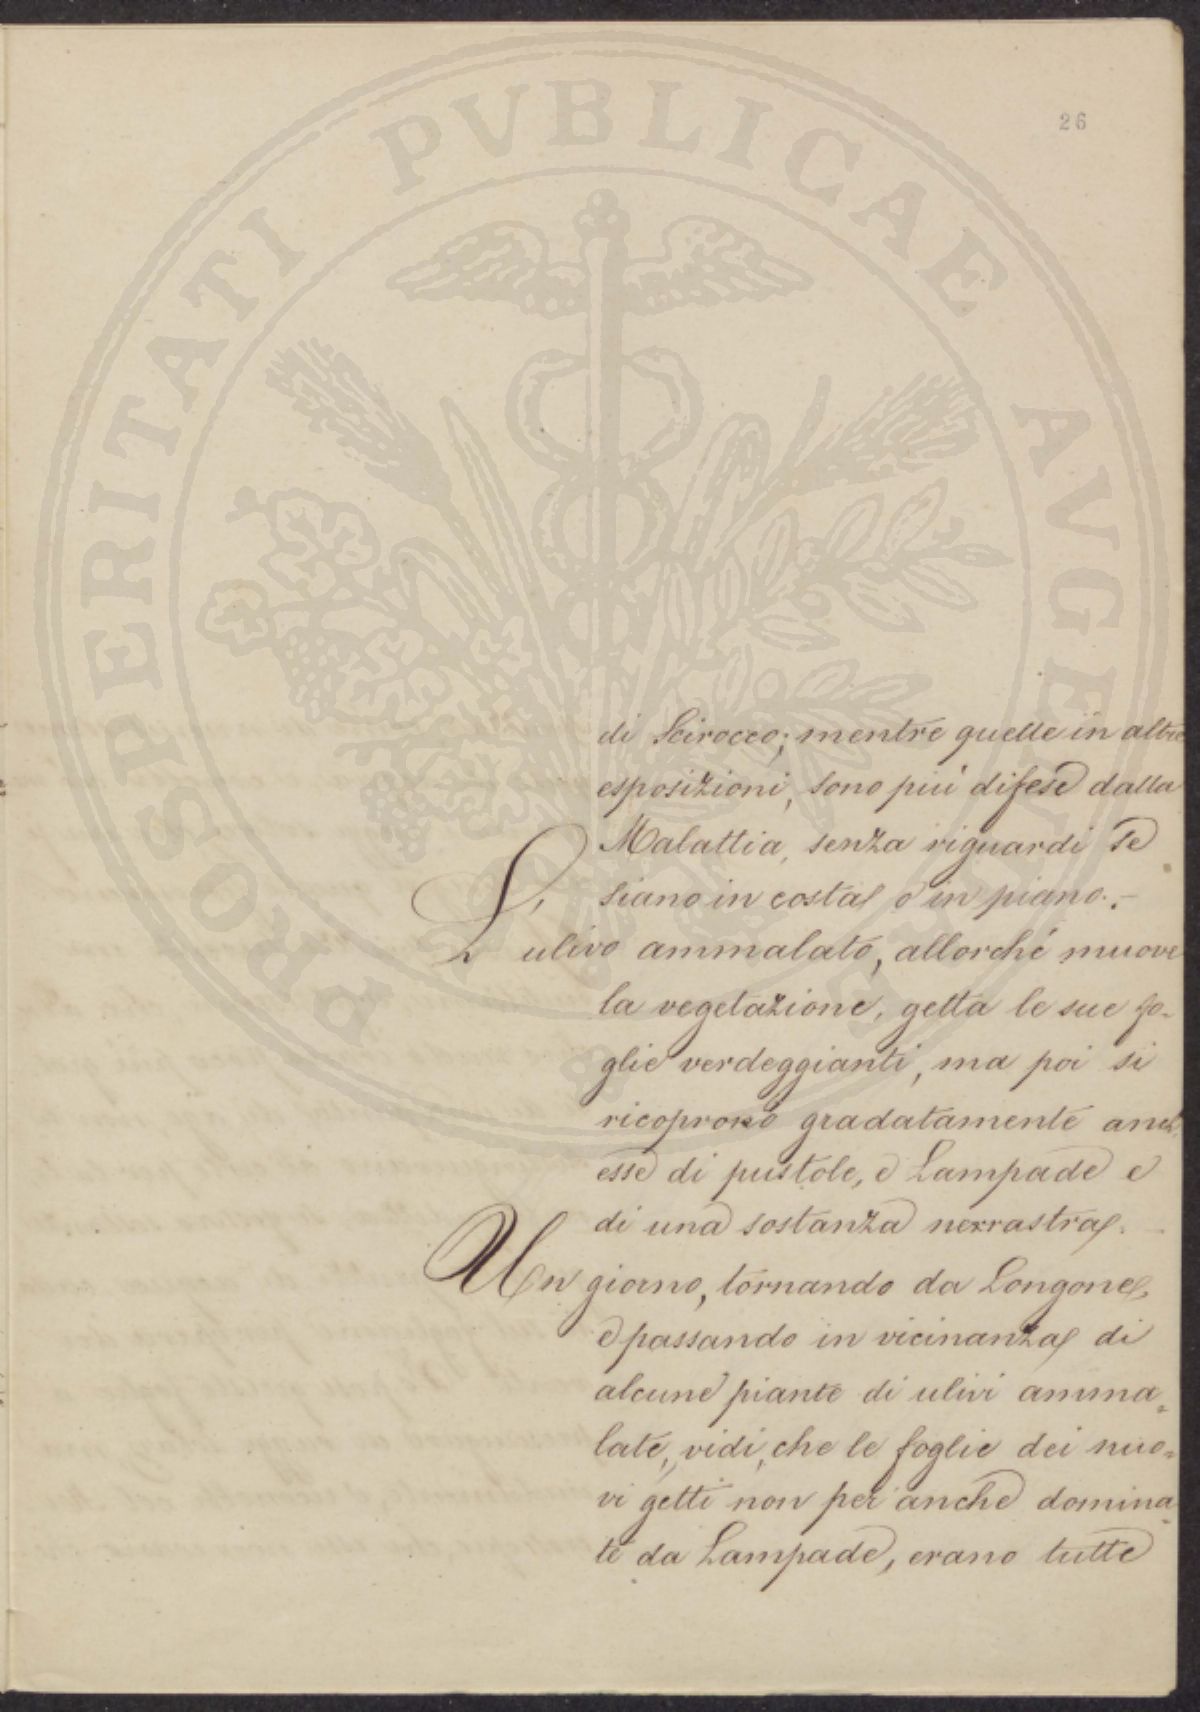 26
PROSPERITATI PVBLICAE AVGENDAE
di Scirocco; mentre quelle in altre
esposizioni, sono più difese dalla
Malattia, senza riguardi se
siano in costa, o in piano.-
L' ulivo ammalato, allorché muove
la vegetazione, getta le sue fo-
glie verdeggianti, ma poi si
ricoprono gradatamente anch'
esse di pustole, e Lampade e
di una sostanza nerrastra.
Un giorno, tornando da Longone,
e passando in vicinanza, di
alcune piante di ulivi amma=
late, vidi, che le foglie dei nuo=
vi getti non per anche domina=
te da Lampade, erano tutte